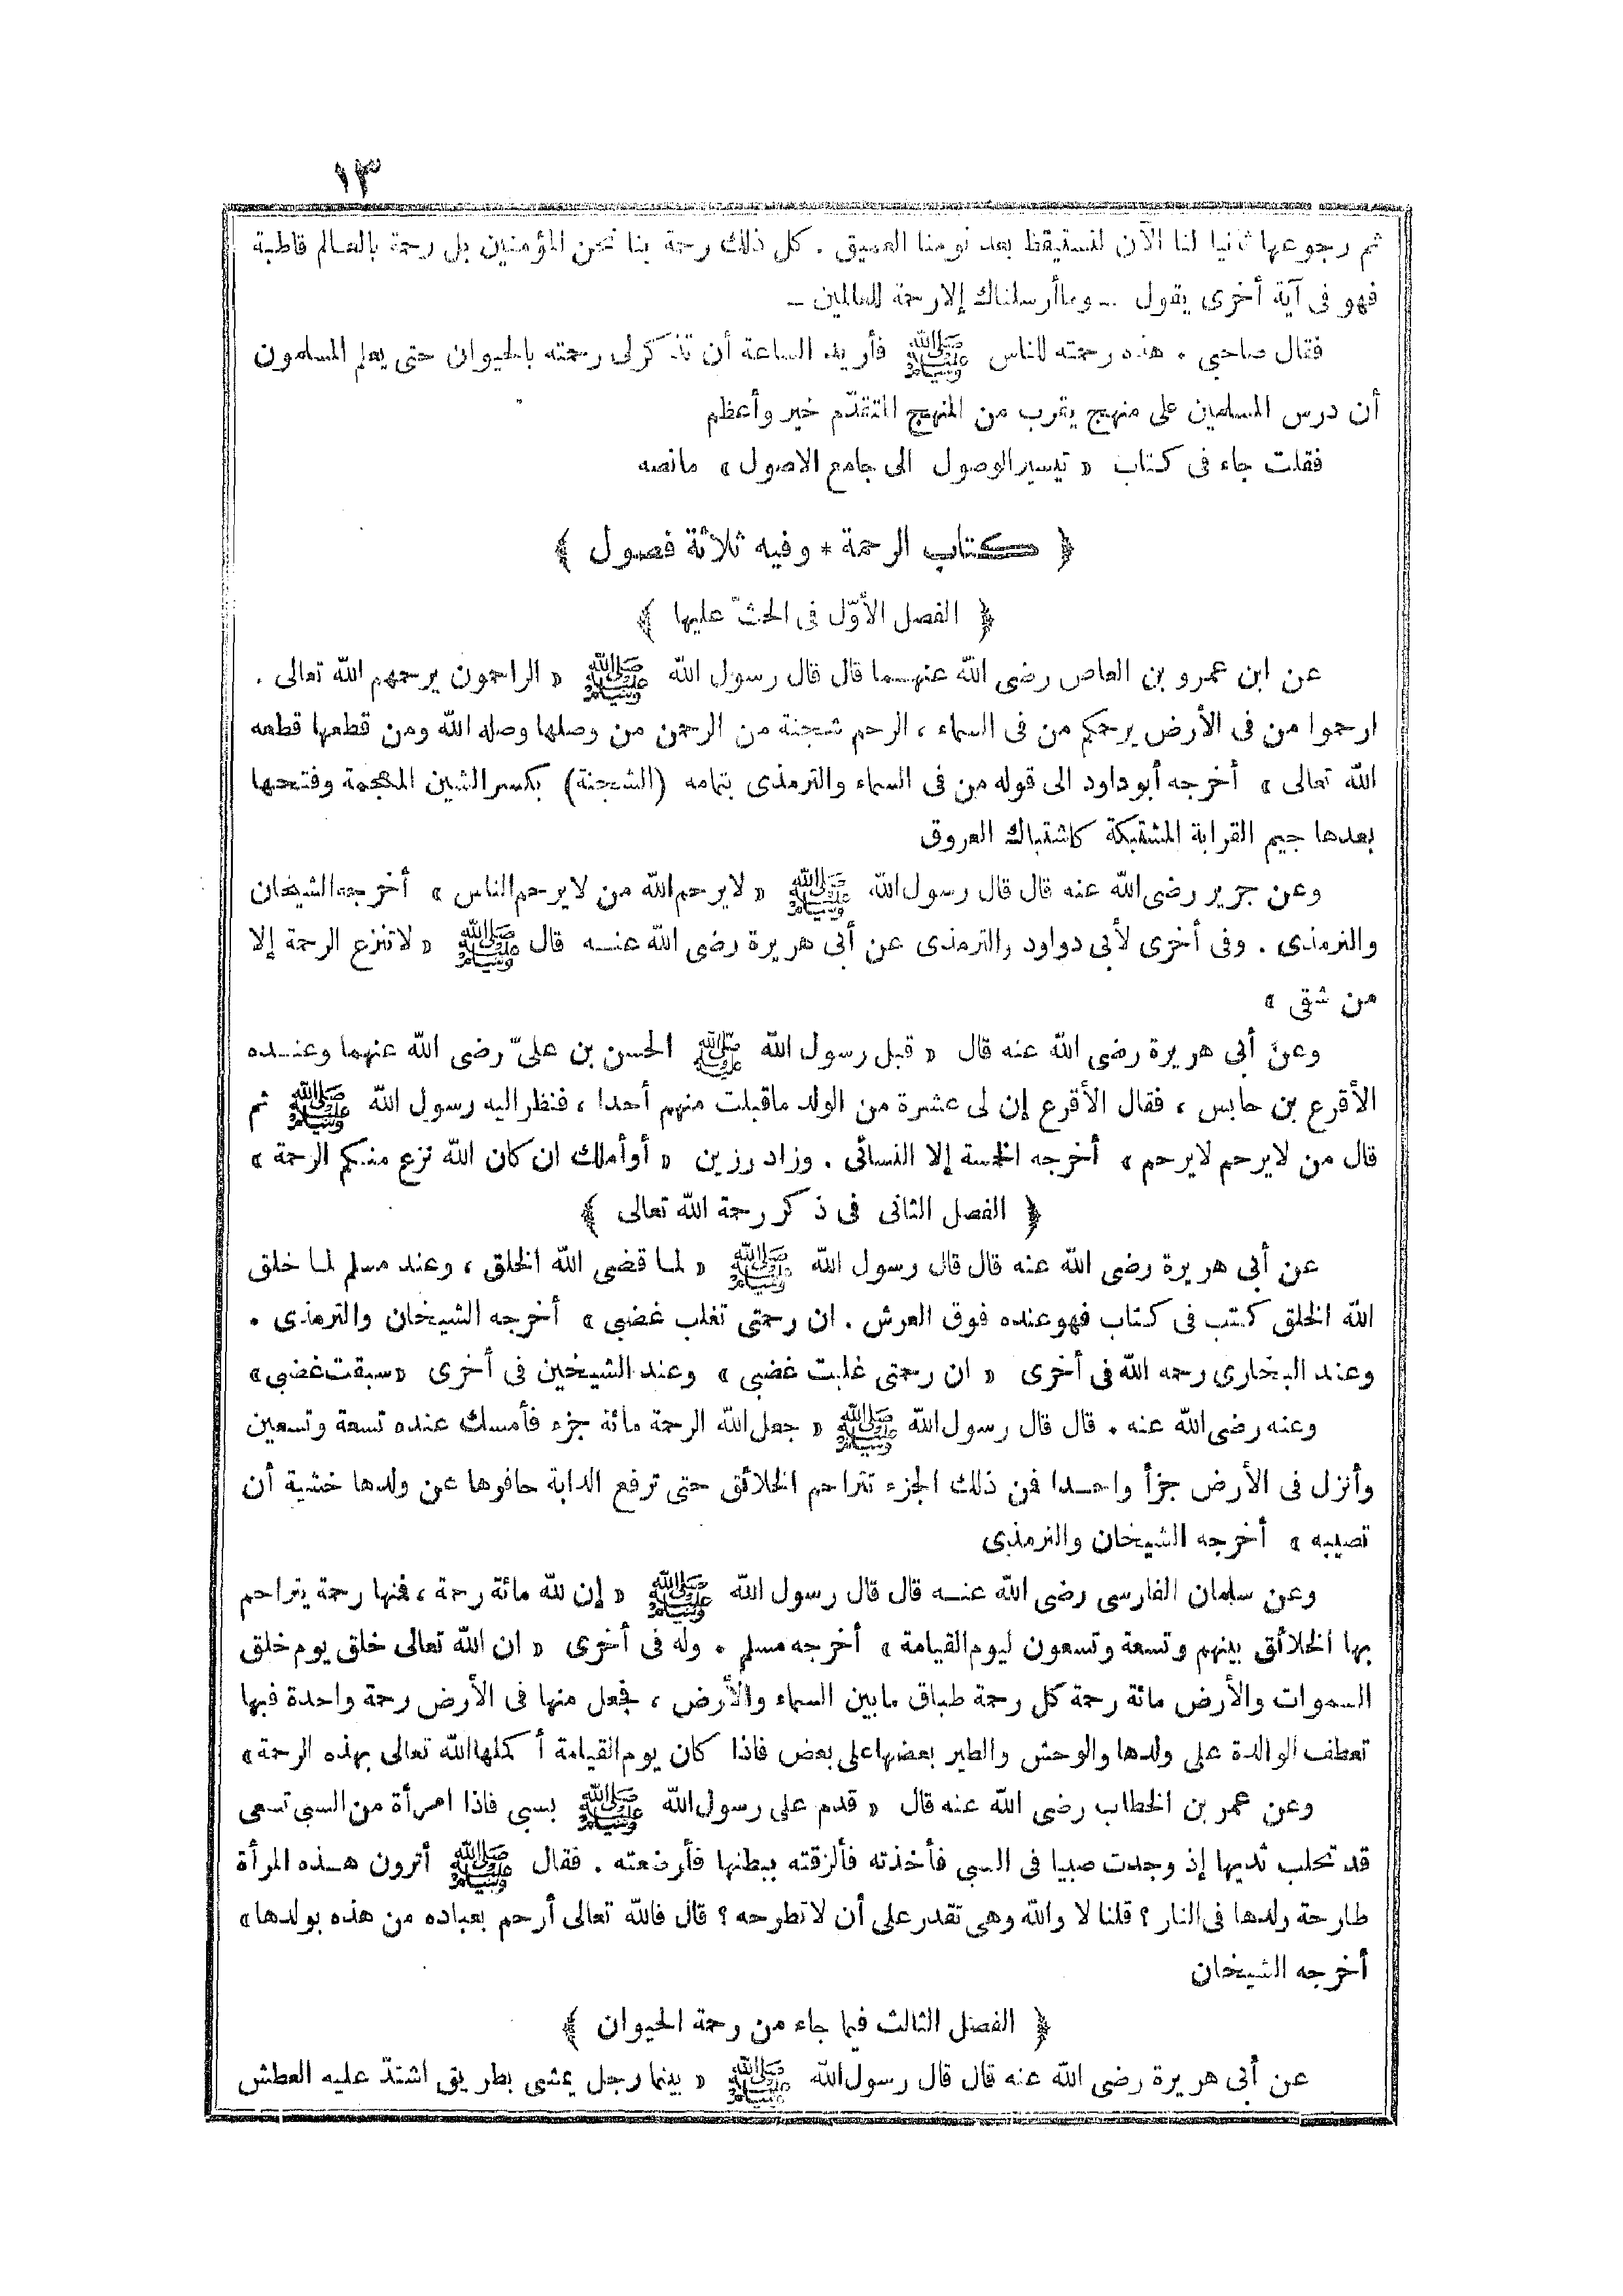 ١٣
ثم رجوعها ثانيا لنا الآن لنستيقظ بعد نومنا العميق . كل ذلك رحمة بنا نحن المؤمنين بل رحمة بالعالم قاطبة
فهو فى آية أخرى يقول - وماأرسلناك إلارحمة للعالمين -
فقال صاحبي . هذه رحمته للناس ﷺ فأريد الساعة أن تذكرلى رحمته بالحيوان حتى يعلم المسلمون
أن درس المسلمين على منهج يقرب من المنهج المتقدّم خير وأعظم
فقلت جاء فى كتاب « تيسيرالوصول الى جامع الاصول » مانصه
﴿ كتاب الرحمة * وفيه ثلاثة فصول ﴾
﴿ الفصل الأوّل فى الحثّ عليها ﴾
عن ابن عمرو بن العاص رضى الله عنهما قال قال رسول الله ﷺ « الراحمون يرحمهم الله تعالى .
ارحموا من فى الأرض يرحمكم من فى السماء ، الرحم شجنة من الرحمن من وصلها وصله الله ومن قطعها قطعه
الله تعالى » أخرجه أبوداود الى قوله من فى السماء والترمذى بتمامه (الشجنة) بكسرالشين المعجمة وفتحها
بعدها جيم القرابة المشتبكة كاشتباك العروق
وعن جرير رضى الله عنه قال قال رسول الله ﷺ « لايرحم الله من لايرحم الناس » أخرجه الشيخان
والترمذى . وفى أخرى لأبى دواود والترمذى عن أبى هريرة رضى الله عنه قال ﷺ « لاتنزع الرحمة إلا
من شقى »
وعن أبى هريرة رضى الله عنه قال « قبل رسول الله ﷺ الحسن بن علىّ رضى الله عنهما وعنده
الأقرع بن حابس ، فقال الأقرع إن لى عشرة من الولد ماقبلت منهم أحدا ، فنظر اليه رسول الله ﷺ ثم
قال من لايرحم لايرحم » أخرجه الخمسة إلا النسائى . وزاد رزين « أوأملك ان كان الله نزع منكم الرحمة »
﴿ الفصل الثانى فى ذكر رحمة الله تعالى ﴾
عن أبى هريرة رضى الله عنه قال قال رسول الله ﷺ « لما قضى الله الخلق ، وعند مسلم لما خلق
الله الخلق كتب فى كتاب فهوعنده فوق العرش . ان رحمتى تغلب غضبى » أخرجه الشيخان والترمذى .
وعند البخارى رحمه الله فى أخرى « ان رحمتى غلبت غضبى » وعند الشيخين فى أخرى «سبقت غضبى»
وعنه رضى الله عنه . قال قال رسول الله ﷺ « جعل الله الرحمة مائة جزء فأمسك عنده تسعة وتسعين
وأنزل فى الأرض جزأ واحدا فمن ذلك الجزء تتراحم الخلائق حتى ترفع الدابة حافرها عن ولدها خشية أن
تصيبه » أخرجه الشيخان والترمذى
وعن سلمان الفارسى رضى الله عنه قال قال رسول الله ﷺ « إن لله مائة رحمة ، فمنها رحمة يتراحم
بها الخلائق بينهم وتسعة وتسعون ليوم القيامة » أخرجه مسلم . وله فى أخرى « ان الله تعالى خلق يوم خلق
السموات والأرض مائة رحمة كل رحمة طباق مابين السماء والأرض ، فجعل منها فى الأرض رحمة واحدة فبها
تعطف الوالدة على ولدها والوحش والطير بعضها على بعض فاذا كان يوم القيامة أكملها الله تعالى بهذه الرحمة»
وعن عمر بن الخطاب رضى الله عنه قال « قدم على رسول الله ﷺ بسبى فاذا امرأة من السبى تسعى
قد تحلب ثديها إذ وجدت صبيا فى السبى فأخذته فألزقته ببطنها فأرضعته . فقال ﷺ أترون هذه المرأة
طارحة ولدها فى النار ؟ قلنا لا والله وهى تقدر على أن لاتطرحه ؟ قال فالله تعالى أرحم بعباده من هذه بولدها»
أخرجه الشيخان
﴿ الفصل الثالث فيما جاء من رحمة الحيوان ﴾
عن أبى هريرة رضى الله عنه قال قال رسول الله ﷺ « بينما رجل يمشى بطريق اشتدّ عليه العطش